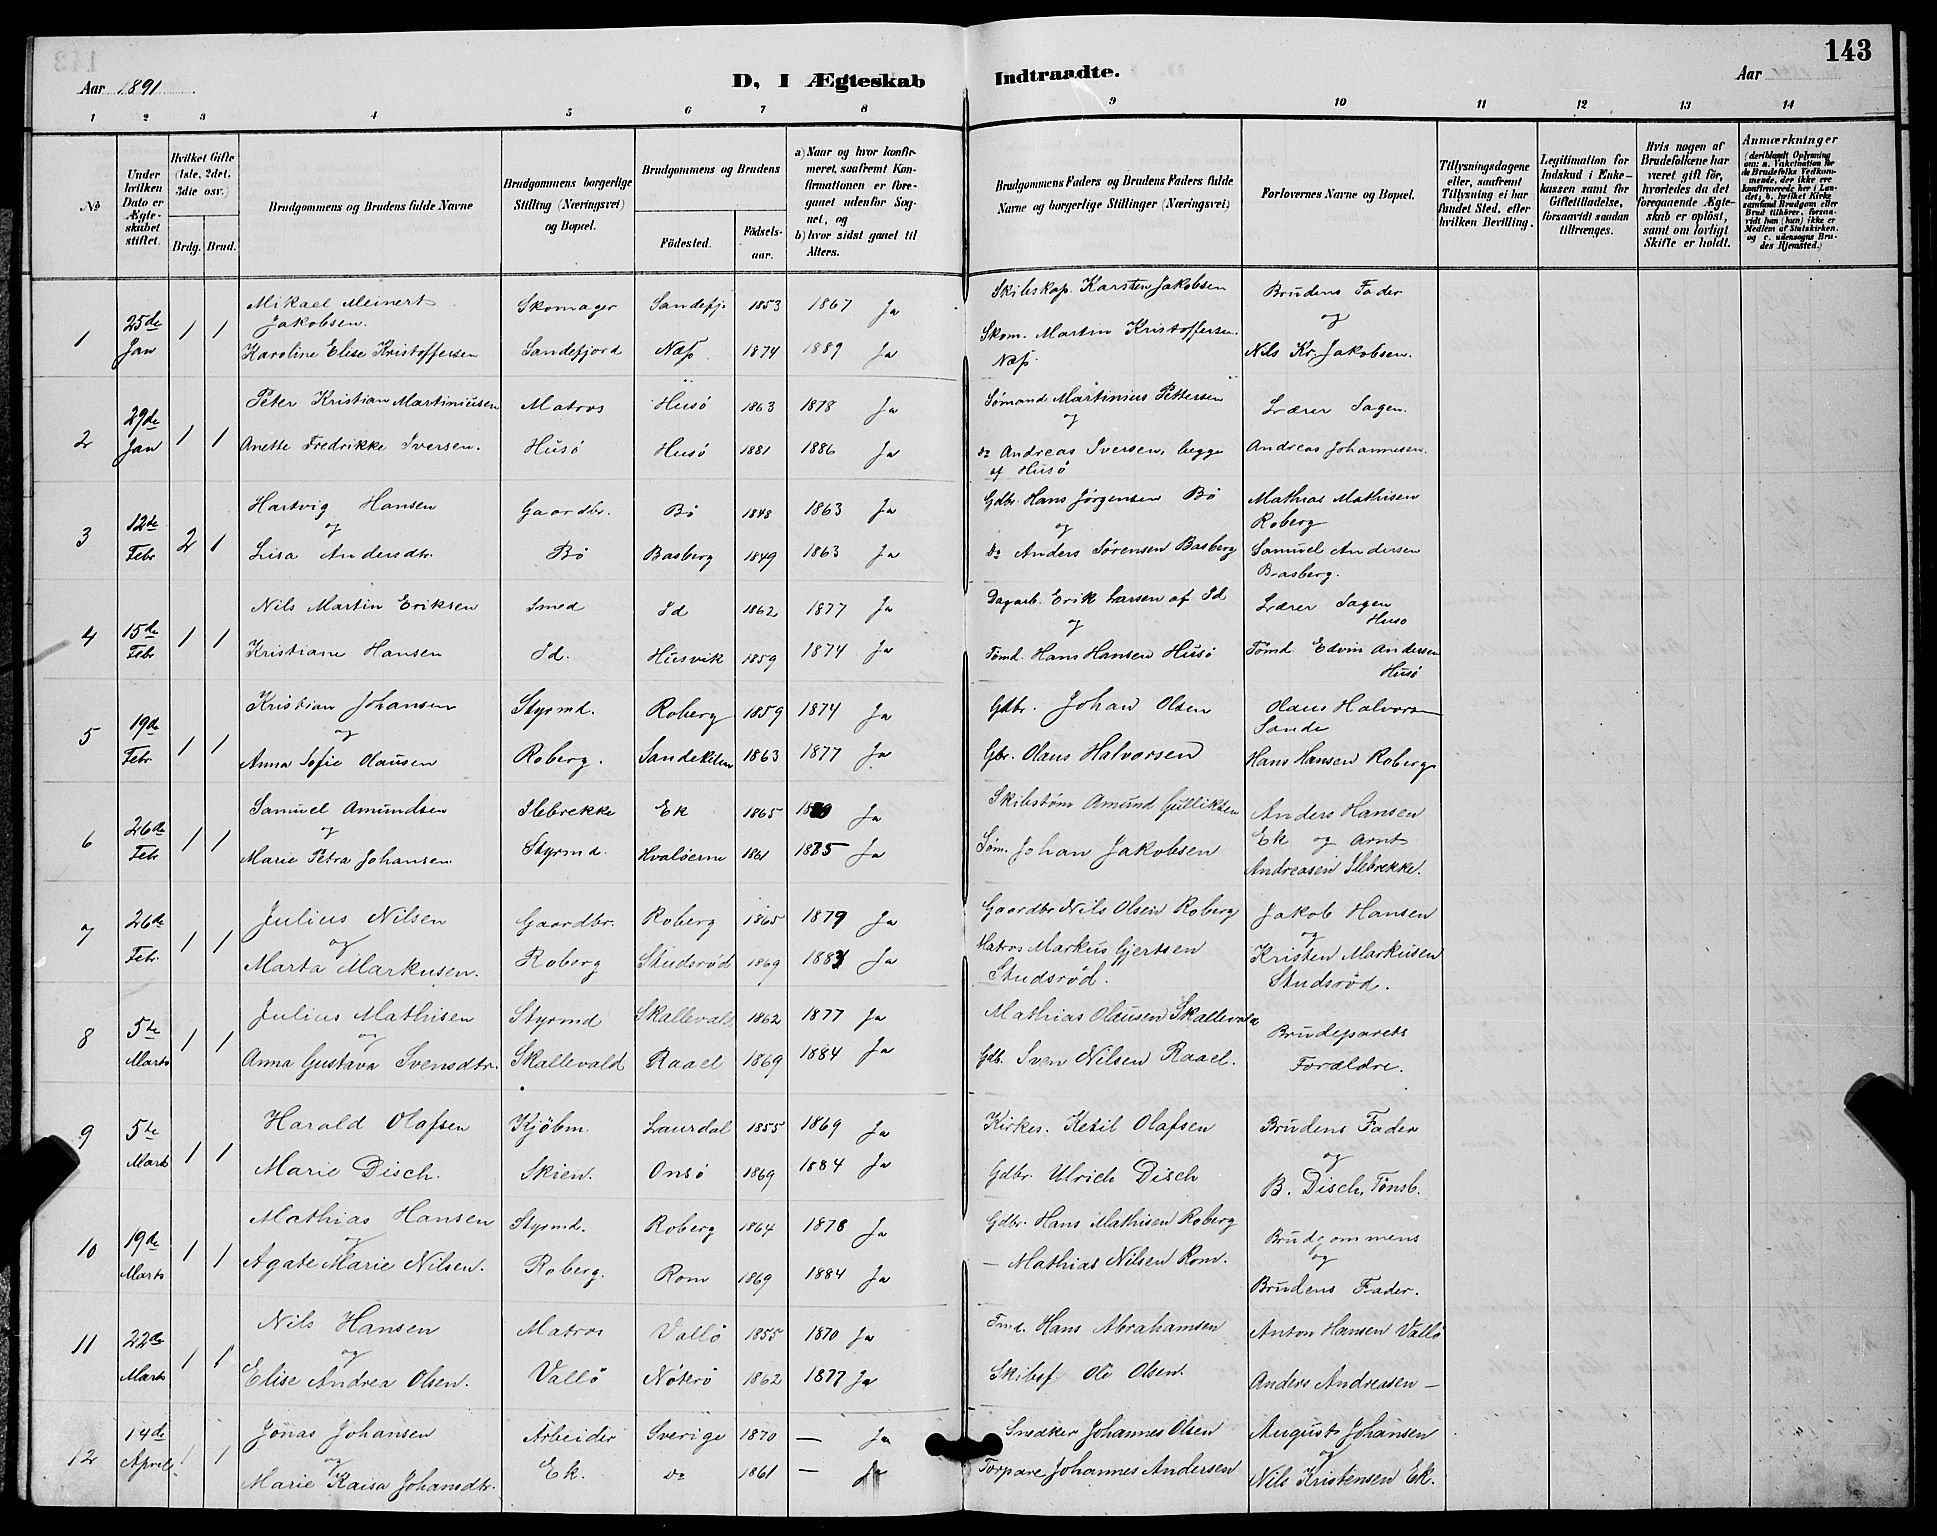 143
Aar 1891
D, I Ægteskab Indtraadte.
Aar
1 2 3 4 5 6 7 8 9 10 11 12 13 14
№
Under hvilken Dato er Ægteskabet stiftet.
Hvilket Gifte (1ste, 2det, 3die osv.)
Brdg. Brud.
Brudgommens og Brudens fulde Navne
Brudgommens borgerlige Stilling (Næringsvei) og Bopæl.
Brudgommens og Brudens
Födested. Födselsaar.
a) Naar og hvor konfirmeret, saafremt Konfirmationen er foregaaet udenfor Sognet, og
b) hvor sidst gaaet til Alters.
Brudgommens Faders og Brudens Faders fulde Navne og borgerlige Stillinger (Næringsvei)
Forlovernes Navne og Bopæl.
Tillysningsdagene eller, saafremt Tillysning ei har fundet Sted, efter hvilken Bevilling.
Legitimation for Indskud i Enkekassen samt for Giftetilladelse, forsaavidt saadan tiltrænges.
Hvis nogen af Brudefolkene har været gift för, hvorledes da det foregaaende Ægteskab er oplöst, samt om lovligt Skifte er holdt.
Anmærkninger (deriblandt Oplysning om: a. Vakcination for de Brudefolks Vedkommende, der ikke ere konfirmerede her i Landet; b. hvilket Kirkesamfund Brudgom eller Brud tilhörer, forsaavidt han (hun) ikke er Medlem af Statskirken, og c. udensogns Brudes Hjemsted.)
1 25de Jan 1 1 Mikael Meinert Jakobsen. Skomager Sandefj. 1853 1867 Ja Skibskap. Karsten Jakobsen Brudens Fader og
Karoline Elise Kristoffersen Sandefjord Næs 1874 1889 Ja Skom. Martin Kristoffersen. Næs. Nils Kr. Jakobsen.
2 29de Jan 1 1 Peter Kristian Martiniusen Matros Husö 1863 1878 Ja Sömand Martinius Pettersen og Lærer Sagen.
Anette Fredrikke Iversen. Husö Husö 1881 1886 Ja do Andreas Iversen, begge af Husö Andreas Johannesen.
3 12te Febr 2 1 Hartvig Hansen og Gaardbr. Bö 1848 1863 Ja Gdbr. Hans Jörgensen Bö og Mathias Mathisen Roberg
Lisa Andersdtr. Bö Basberg 1849 1863 Ja do Anders Sörensen Basberg Samuel Andersen Basberg.
4 15de Febr 1 1 Nils Martin Eriksen Smed Id 1862 1877 Ja Dagarb. Erik Larsen af Id og Lærer Sagen Husö
Kristiane Hansen Id. Husvik 1859 1874 Ja Tömd. Hans Hansen Husö Tömd Edvin Andersen Husö
5 19de Febr. 1 1 Kristian Johansen og Styrmd. Roberg 1859 1874 Ja Gdbr. Johan Olsen Olaus Halvorsen Sande
Anna Sofie Olausen Roberg. Sandekilen 1863 1877 Ja Gbr. Olaus Halvorsen Hans Hansen Roberg
6 26de Febr 1 1 Samuel Amundsen og Slebrekke Ek 1865 Ja Skibstöm Amund Gulliksen Anders Hansen
Marie Petra Johansen Styrmd. Hvaløerne 1861 1875 Ja Söm. Johan Jakobsen Ek og Arnt Andreasen Slebrekke.
7 26de Febr. 1 1 Julius Nilsen og Gaardbr. Roberg 1865 1879 Ja Gaardbr Nils Olsen Roberg Jakob Hansen og
Marta Markusen. Roberg Studsröd 1869 Ja Matros Markus Gjertsen Studsröd. Kristen Markusen Studsröd.
8 5te Marts 1 1 Julius Mathisen og Styrmd Skallevald 1862 1877 Ja Mathias Olausen Skallevald Brudeparets
Anna Gustava Svensdtr. Skallevald Raael 1869 1884 Ja Gdb. Sven Nilsen Raael. Forældre.
9 5te Marts 1 1 Harald Olafsen Kjöbm. Laurdal 1855 1869 Ja Kirkes. Ketil Olafsen Brudens Fader og
Marie Disch. Skien. Onsö 1869 1884 Ja Gdbr. Ulrich Disch B. Disch, Tönsb.
10 19de Marts 1 1 Mathias Hansen og Styrmd. Roberg 1864 1878 Ja Gdbr. Hans Mathisen Roberg Brudgommens og
Agate Marie Nilsen. Roberg. Rom 1869 1884 Ja — Mathias Nilsen Rom. Brudens Fader.
11 22de Marts 1 1 Nils Hansen og Matros Vallö 1855 1870 Ja Tmd. Hans Abrahamsen Anton Hansen Vallö
Elise Andrea Olsen. Vallö Nöterö 1862 1877 Ja Skibsf Ole Olsen. Anders Andreasen —
12 14de April 1 1 Jonas Johansen og Arbeider Sverige 1870 — Ja Snedker Johannes Olsen August Johansen og
Marie Kaisa Johansdtr. Ek. do 1861 — Ja Torpare Johannes Andersen Nils Kristensen Ek.